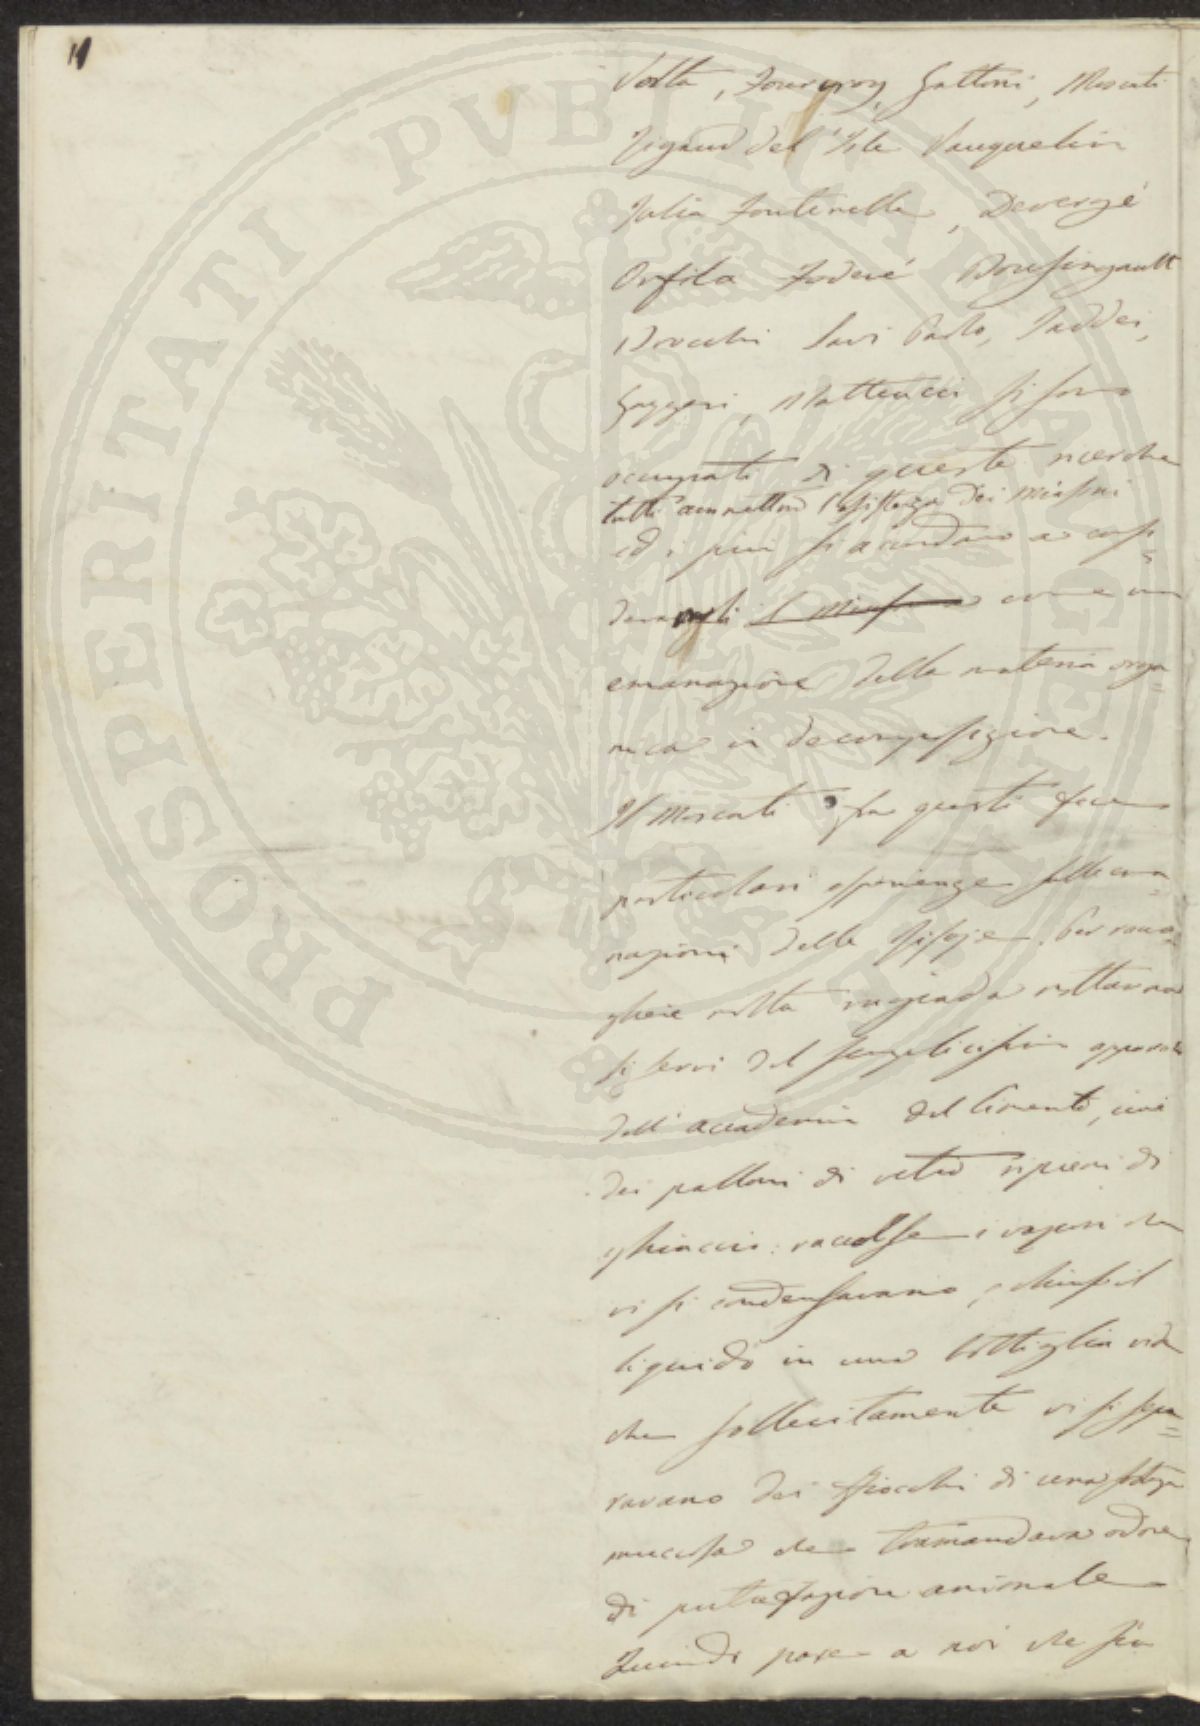 11
Volta, Fourcroy, Gattoni, Moscati
Rigaud del'Isle Vauquelin
Julia Fontenelle, Devergé
Orfila Foderé Boussingault
Brocchi Savi Paolo, Taddei,
Gazzeri, Matteucci si sono
occupati di queste ricerche
tutti ammettono l'esistenza dei miasmi
ed i più si accordano a consi=
derarli il miasma come un
emanazione della materia orga=
nica in decomposizione.
Il Moscati fra questi fece
particolari esperienze sulle ema=
nazioni delle risaje. Per racco=
gliere nella rugiada notturna
si servì del semplicissimo apparato
dell'accademia del Cimento, cioè
dei palloni di vetro ripieni di
ghiaccio: raccolse i vapori che
vi si condensavano, chiuse il
liquido in una bottiglia vide
che sollecitamente vi si sepa=
ravano dei fiocchi di una sostanza
mucosa che tramandava odore
di putrefazione animale
Quindi pare a noi che sia
PROSPERITATI PVBLICAE AVGENDAE